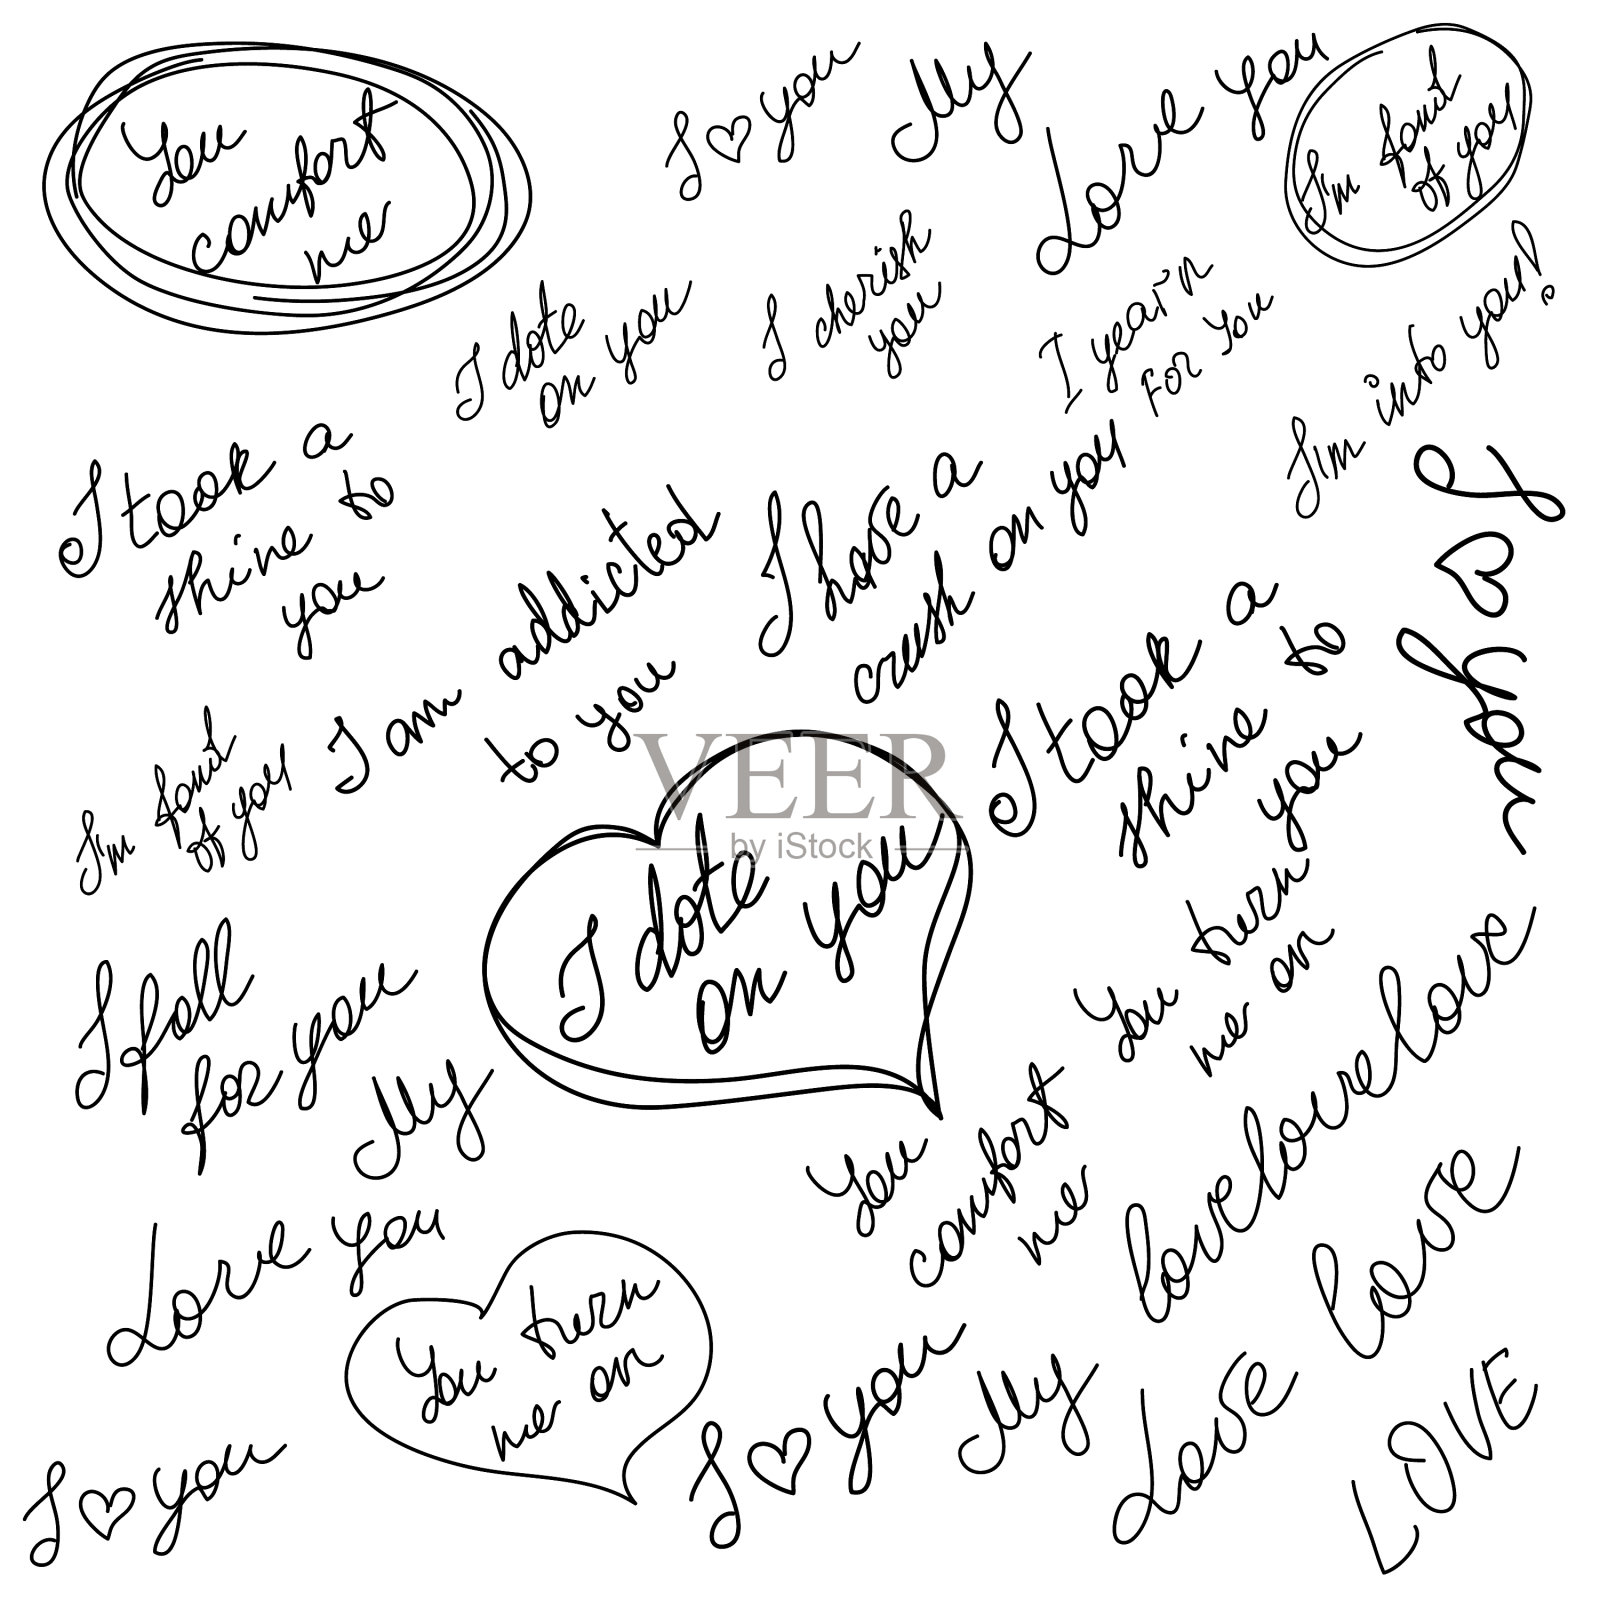 You
comfort
me
I ♡ you
My
Love you
I'm fond
of you
I dote
on you
I cherish
you
I yearn
FOR YOU
I'm into you!
I took a
shine to
you
I am addicted
to you
I have a
crush on you
I ♡ you
I'm fond
of you
I dote
on you
I took a
shine to
you
I fall
for you
My
You turn
me on
lovelovelove
You
comfort
me
Love you
You turn
me on
love
I ♡ you
I ♡ you
My
Love
LOVE
VEER
by iStock